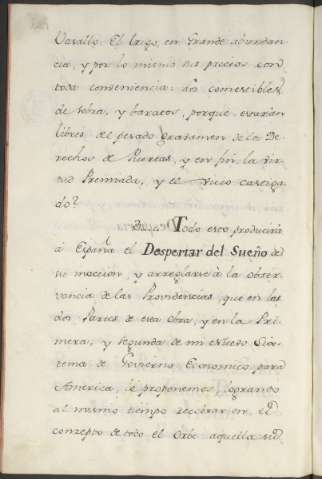 Vasallo. El trigo, en Grande abundan-
cia, y por lo mismo sus precios con
toda conveniencia: los comestibles
de sobra, y baratos, porque estarían
libres del pesado gravamen de los De-
rechos de Puertas, y en fin la Vir-
tud Premiada, y el Vicio castiga-
do?
Todo esto producirá
á España el Despertar del Sueño de
su inacción, y arreglarse á la obser-
vancia de las Providencias, que en las
dos Partes de esta Obra, y en la Pri-
mera, y segunda de mi Nuevo Sis-
tema de Govierno Economico para
America, le proponemos, logrando
al mismo tiempo recobrar en el
concepto de todo el Orbe aquella